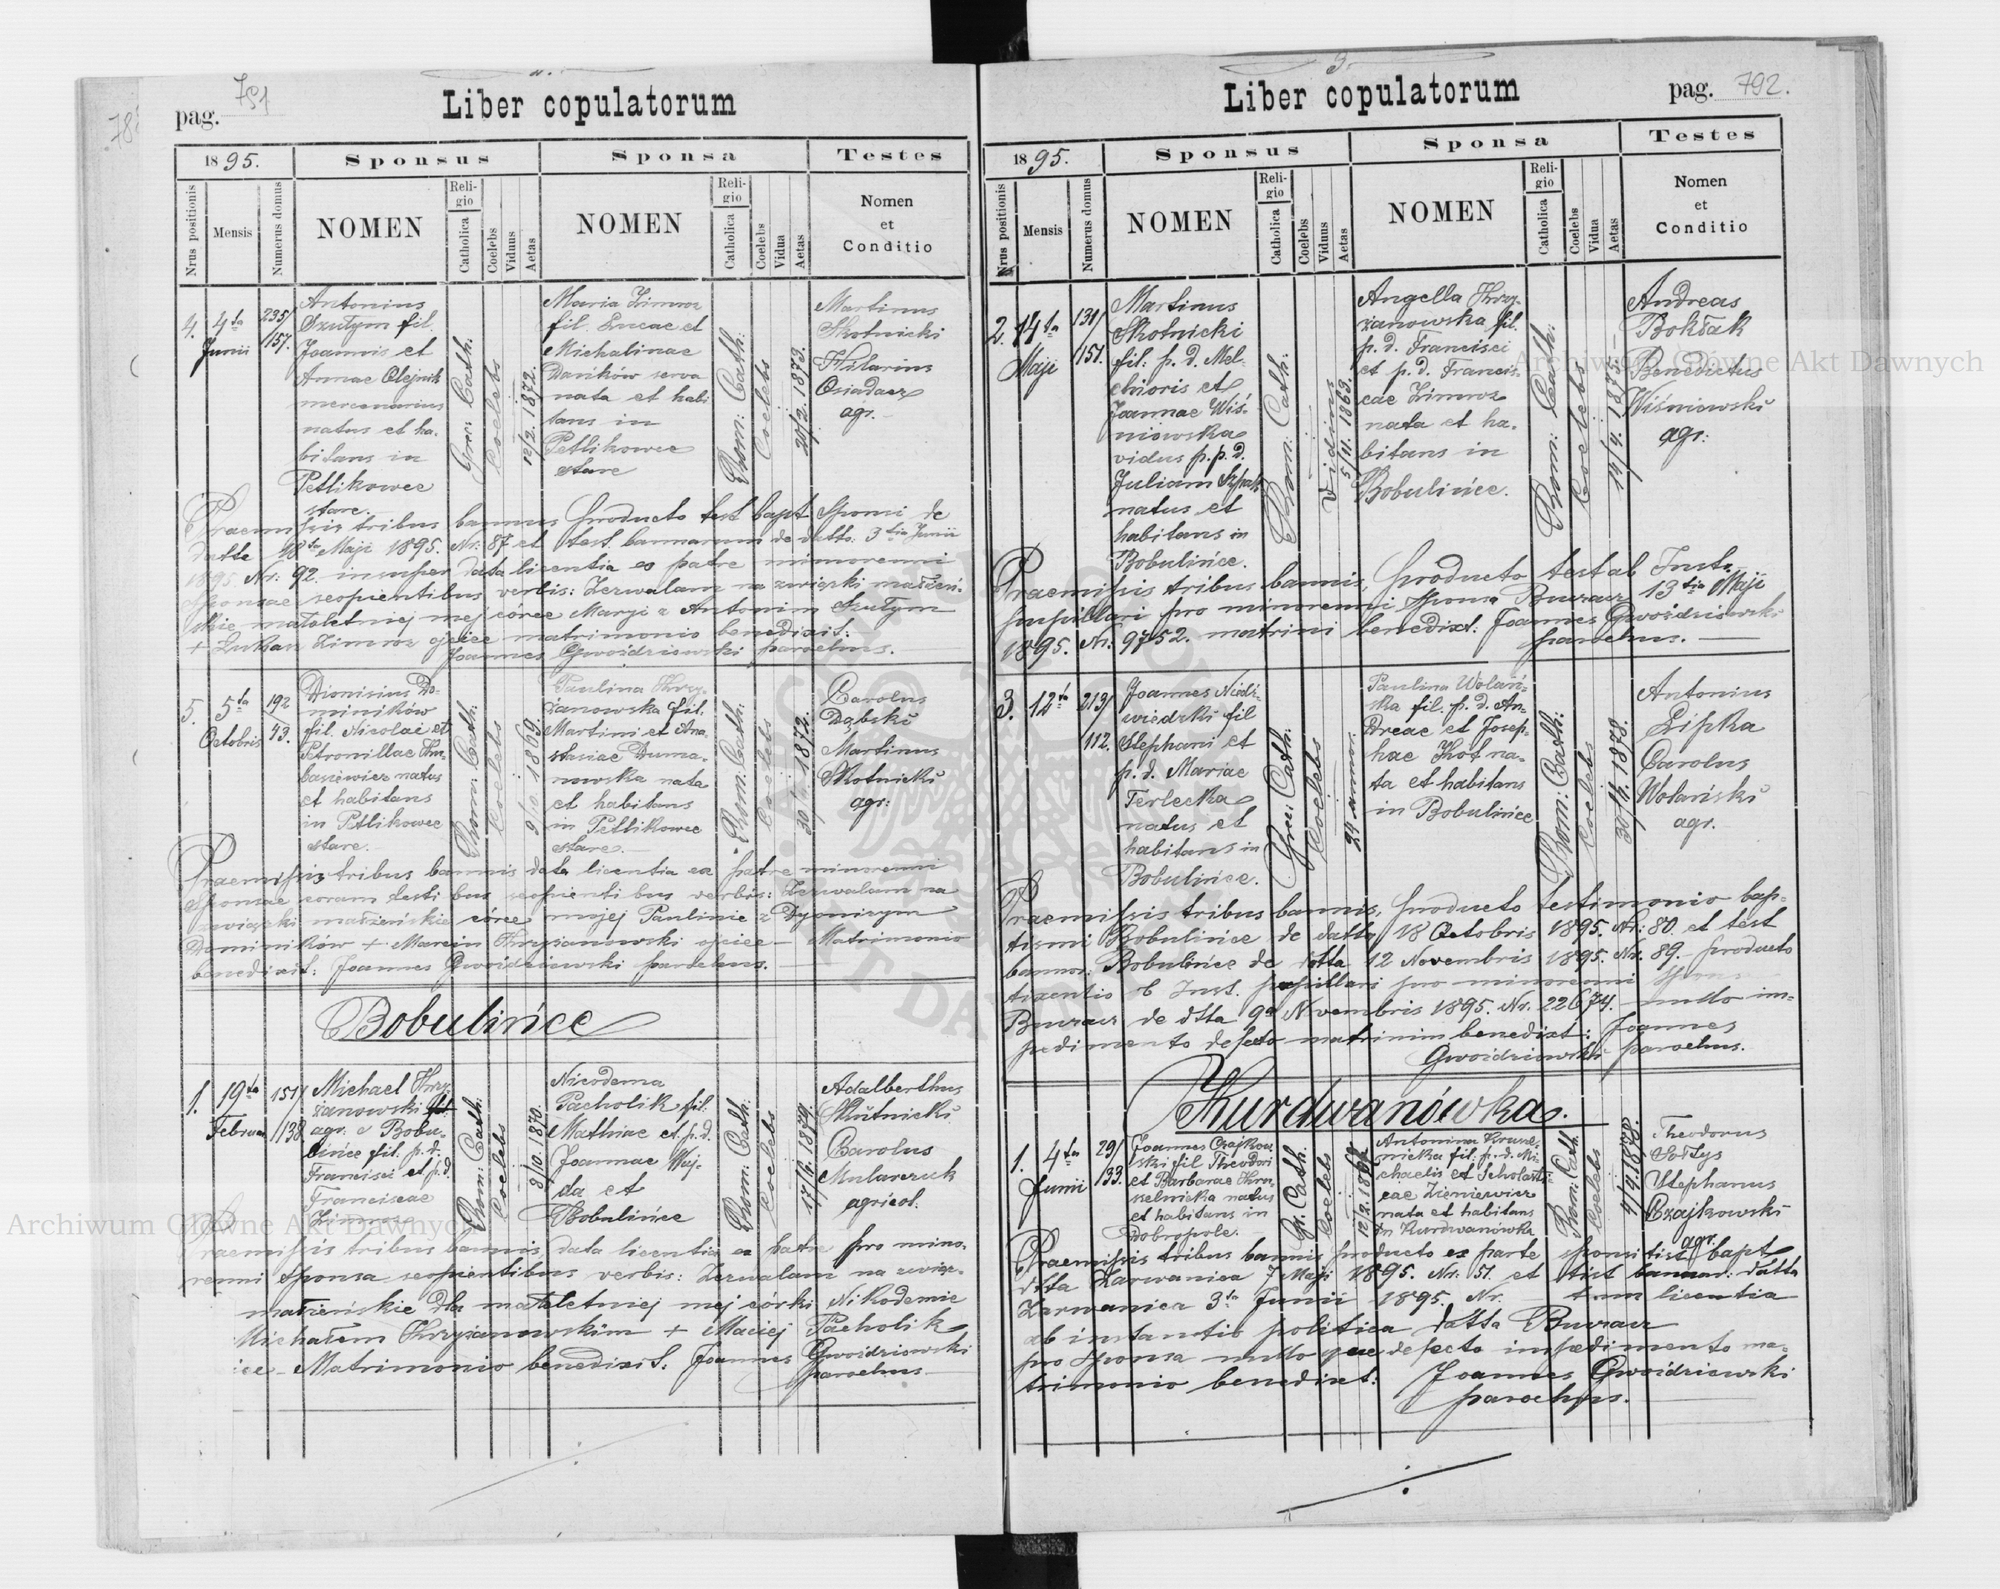 pag. 791
Liber copulatorum
1895.
Sponsus
Sponsa
Testes
Nrus positionis
Mensis
Numerus domus
NOMEN
Religio
Catholica
Coelebs
Viduus
Aetas
NOMEN
Religio
Catholica
Coelebs
Vidua
Aetas
Nomen
et
Conditio
4.
4ta
Junii
235/
157.
Antonius
Szutym fil.
Joannis et
Annae Olejnik
mercenarius
natus et ha-
bitans in
Petlikowce
stare.
Grec: Cath:
Coelebs
12/2. 1872.
Maria Zimroz
fil. Lucae et
Michalinae
Daników serva
nata et habi
tans in
Petlikowce
stare
Rom: Cath:
Coelebs
20/2. 1873.
Martinus
Skotnicki
Hilarius
Osiadacz
agr.
Praemissis tribus bannis producto test bapt Sponsi de
datto 18ta Maji 1895. Nr: 87 et test. bannorum de datto. 3tia Junii
1895. Nr: 92. insuper data licentia ex patre minorenni
Sponsae sequentibus verbis: Zezwalam na związki małżeń-
skie małoletniej mej córce Maryi z Antonim Szutym
+ Łukasz Zimroz ojciec matrimonio benedixit:
Joannes Gwoździowski parochus.
5.
5ta
Octobris
192
43.
Dionisius Do-
miników
fil. Nicolai et
Petronillae Hu-
lasiewicz natus
et habitans
in Petlikowce
stare.
Rom: Cath:
Coelebs
9/10. 1869.
Paulina Krzy-
żanowska fil.
Martini et Ana
stasiae Duma-
nowska nata
et habitans
in Petlikowce
stare.
Rom: Cath:
Coelebs
1872.
Carolus
Dąbski
Martinus
Skotnicki
agr:
Praemissis tribus bannis data licentia ex patre minorenni
Sponsae coram testibus sequentibus verbis: Zezwalam na
związki małżeńskie córce mojej Paulinie z Dyonizym
Dominików + Marcin Krzyżanowski ojciec - Matrimonio
benedixit: Joannes Gwoździowski parochus.
Bobulińce
1.
19ta
Februar.
151/
138
Michael Krzy
żanowski
agr. e Bobu-
lińce fil. p.d.
Francisci et p.d.
Franciscae
Zimroz
Rom: Cath:
Coelebs
8/10. 1870.
Nicodema
Pacholik fil.
Mathiae et p.d.
Joannae Waj-
da et
Bobulińce
Rom: Cath:
Coelebs
17/6. 1879.
Adalberthus
Skotnicki
Carolus
Mularczuk
agricol.
Praemissis tribus bannis, data licentia ex patre pro mino-
renni Sponsa sequentibus verbis: Zezwalam na związ-
małżeńskie dla małoletniej mej córki Nikodemie
Michałem Krzyżanowskim + Maciej Pacholik
- Matrimonio benedixit: Joannes Gwoździowski
parochus
pag. 792.
Liber copulatorum
1895.
Sponsus
Sponsa
Testes
Nrus positionis
Mensis
Numerus domus
NOMEN
Religio
Catholica
Coelebs
Viduus
Aetas
NOMEN
Religio
Catholica
Coelebs
Vidua
Aetas
Nomen
et
Conditio
2.
14ta
Maji
131/
151.
Martinus
Skotnicki
fil. p. d. Mel-
chioris et
Joannae Wiś-
niowska
vidus p.p.d.
Juliam
natus et
habitans in
Bobulińce.
Rom: Cath:
Viduus
5/11. 1863.
Angella Krzy-
żanowska fil.
p. d. Francisci
et p. d. Francis-
cae Zimroz
nata et ha-
bitans in
Bobulińce.
Rom: Cath:
Coelebs
14/9. 1875.
Andreas
Bokšak
Benedictus
Wiśniowski
agr:
Praemissis tribus bannis, producto test ab Inst.
pupillari pro minorenni Sponsa Buczacz 13tia Maji
1895. Nr: 9752. matrim benedixt: Joannes Gwoździowski
parochus.
3.
12ta
213/
112.
Joannes Niedź-
wiedzki fil
Stephani et
p. d. Mariae
Terlecka
natus et
habitans in
Bobulińce.
Gr: Cath:
Coelebs
24 annor.
Paulina Wolań-
ska fil. p. d. An-
dreae et Josep-
hae Kot na-
ta et habitans
in Bobulińce
Rom: Cath:
Coelebs
1878.
Antonius
Lipka
Carolus
Wolański
agr.
Praemissis tribus bannis, producto testimonio bap-
tismi Bobulińce de datto 18 Octobris 1895. Nr: 80. et test
bannor: Bobulińce de datta 12 Novembris 1895. Nr. 89. producto
Inst. pupillari pro minorenni
Buczacz de dtta 9a Novembris 1895. Nr. 22674. nullo im-
pedimento defecto matrimon benedixt: Joannes
Gwoździowski parochus.
Kurdwanówka.
1.
4ta
Junii
29/
33.
Joannes Czajkow
ski fil Theodori
et Barbarae
natus
et habitans in
Dobropole.
Gr. Cath.
Coelebs
Antonina
fil. p. d. Mi-
chaelis et Scholasti-
cae Zieniewicz
nata et habitans
in Kurdwanówka
Rom: Cath:
Coelebs
1/9. 1878.
Theodorus
Sołtys
Stephanus
Czajkowski
agr.
Praemissis tribus bannis producto ex parte sponsi tist bapt
dtta Zarwanica 7 Maji 1895. Nr: 51. et tist bannor: datta
Zarwanica 3ta Junii 1895. Nr. licentia
ab instantio politica datta Buczacz
pro sponsa nullo que defecto impedimento ma-
trimonio benedixt: Joannes Gwoździowski
parochus.
Archiwum Główne Akt Dawnych
Archiwum Główne Akt Dawnych